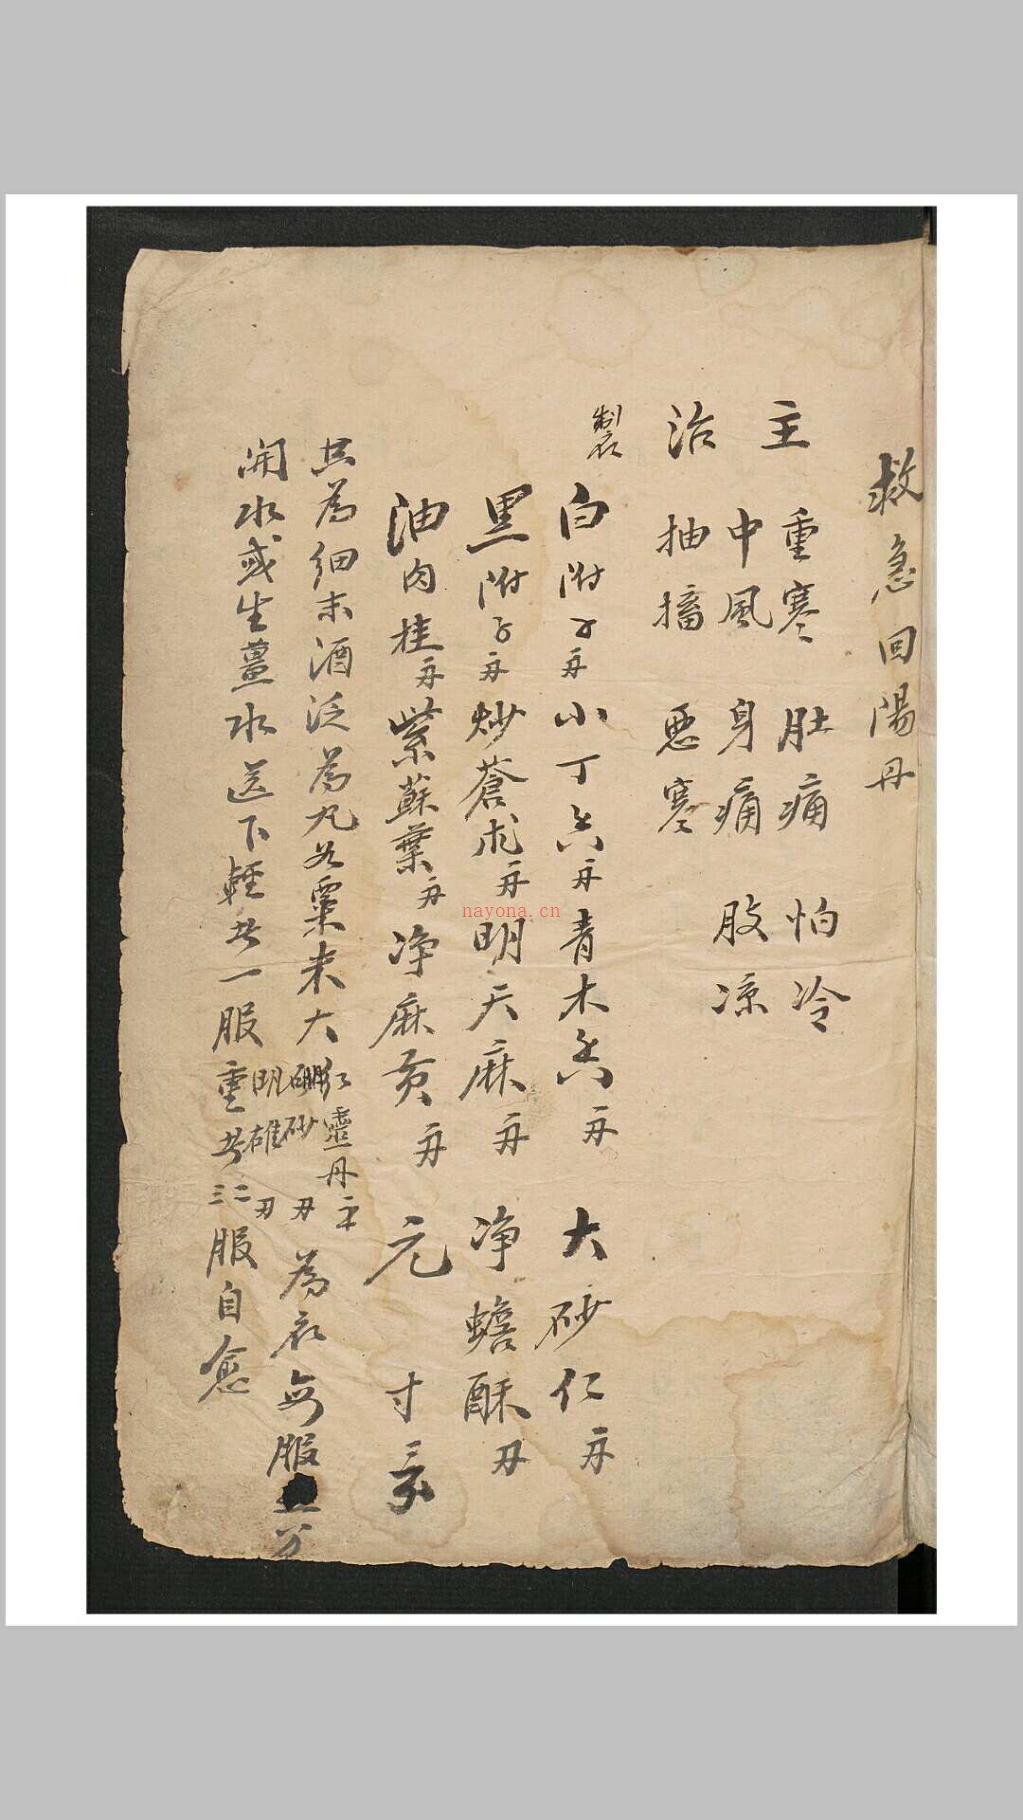 救急回陽丹
主 重寒 肚痛 怕冷
中風 身痛 肢凉
治 抽搐 惡寒
製
白附子 小丁香 青木香 大砂仁
黑附子 炒蒼朮 明天麻 净蟾酥
油肉桂 紫蘇葉 净麻黄 元寸
共為細末酒泛為丸如粟米大 紅靈丹 硼砂 明雄 為衣每服 分
開水或生薑水送下輕者一服重者二三服自愈
nayona.cn